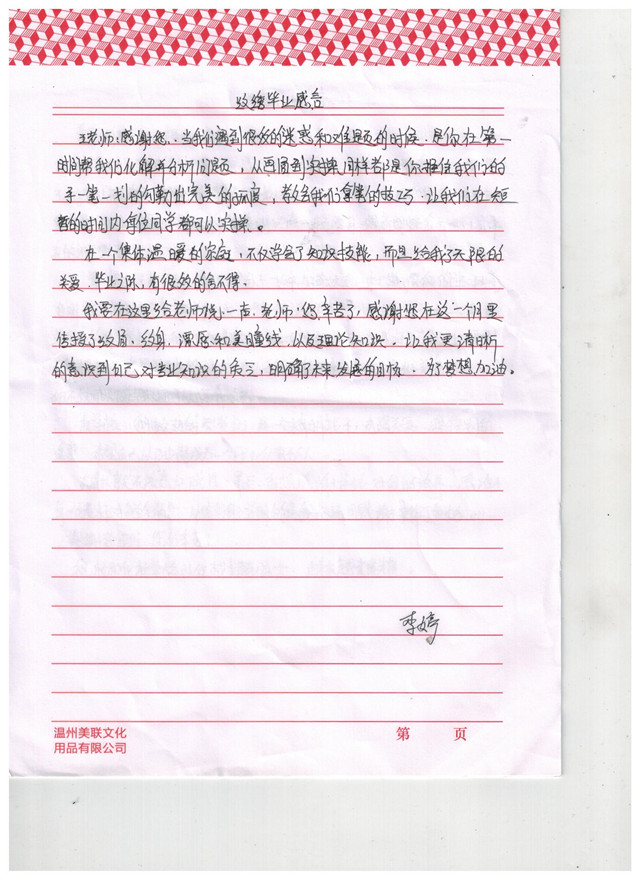 纹绣毕业感言
王老师：感谢您.当我们遇到很多的迷惑和难题的时候.是你在第一
时间帮我们化解并分析问题，从画图到实操同样都是你握住我们的
手一笔一划的勾勒出完美的弧度，教会我们拿笔的技巧.让我们在短
暂的时间内每位同学都可以实操。
在一个集体温暖的家庭，不仅学会了知识技能，而且给我了无限的
关爱.毕业之际.有很多的舍不得.
我要在这里给老师说一声.老师.您辛苦了，感谢您在这一个月里
传授了纹眉、纹身、漂唇和美瞳线，以及理论知识.让我更清晰
的意识到自己对专业知识的，明确了未来发展的目标.为了梦想加油。
李婷
温州美联文化
用品有限公司
第 页